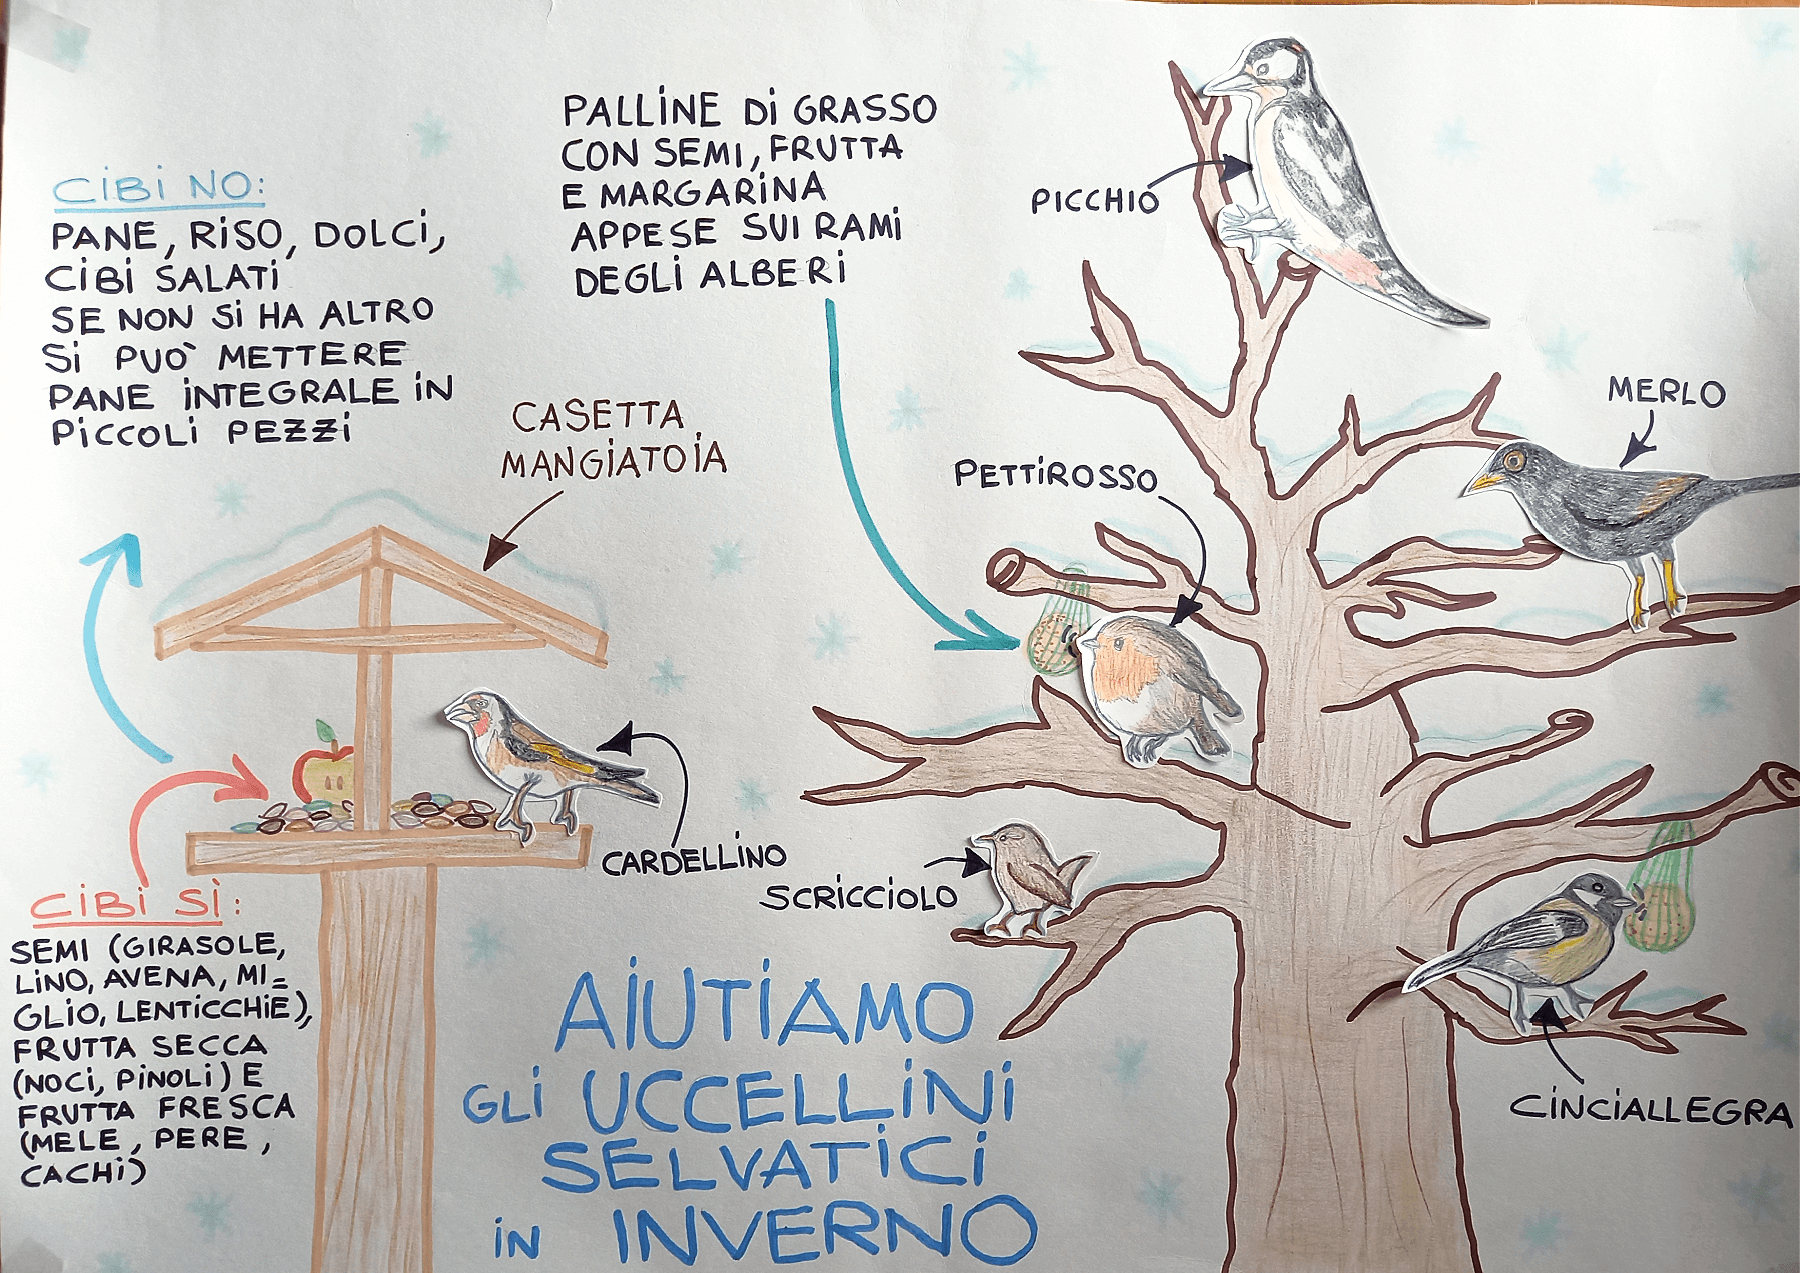 CIBI NO:
PANE, RISO, DOLCI,
CIBI SALATI
SE NON SI HA ALTRO
SI PUO' METTERE
PANE INTEGRALE IN
PICCOLI PEZZI
PALLINE DI GRASSO
CON SEMI, FRUTTA
E MARGARINA
APPESE SUI RAMI
DEGLI ALBERI
CASETTA
MANGIATOIA
PICCHIO
MERLO
PETTIROSSO
CARDELLINO
SCRICCIOLO
CINCIALLEGRA
CIBI SÌ:
SEMI (GIRASOLE,
LINO, AVENA, MI=
GLIO, LENTICCHIE),
FRUTTA SECCA
(NOCI, PINOLI) E
FRUTTA FRESCA
(MELE, PERE,
CACHI)
AIUTIAMO
GLI UCCELLINI
SELVATICI
IN INVERNO